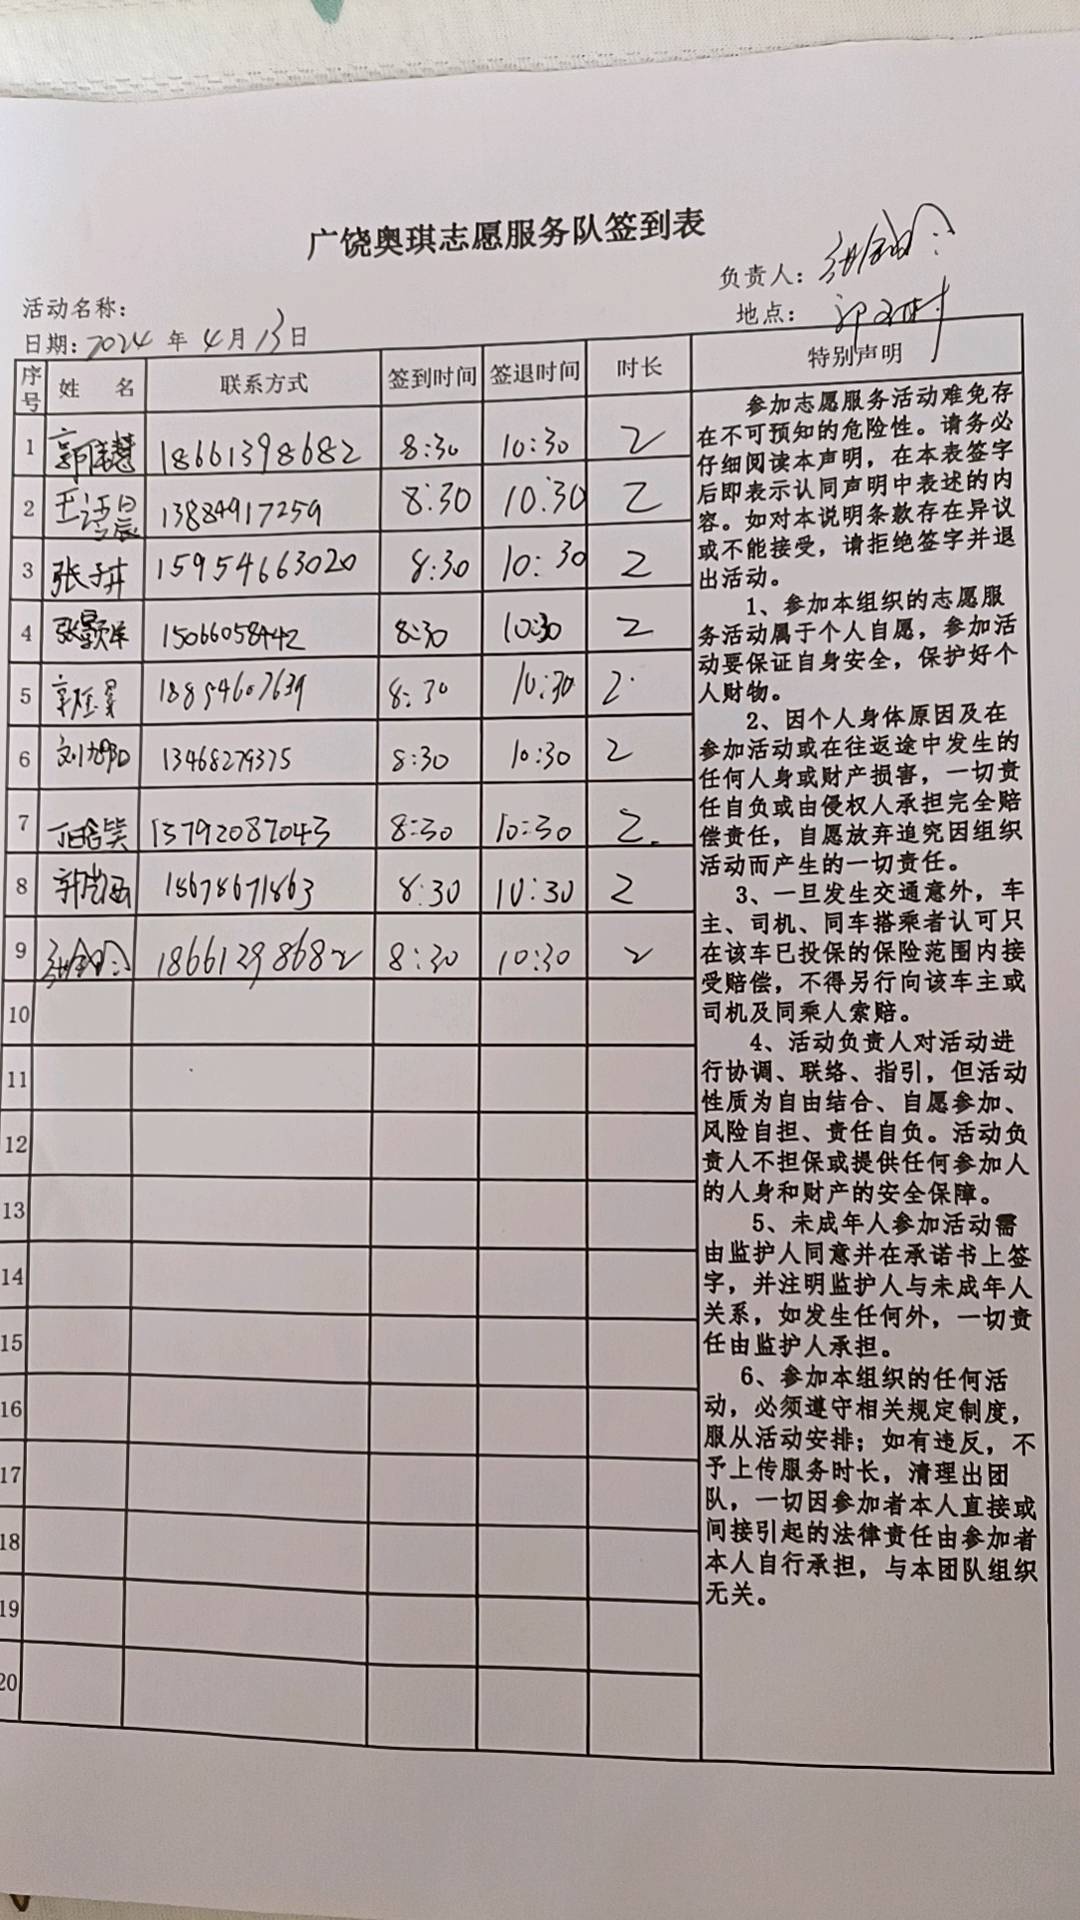 广饶奥琪志愿服务队签到表
负责人：
活动名称：
地点：
日期：2024 年 4 月 13 日
序号 姓 名 联系方式 签到时间 签退时间 时长 特别声明
1 18661398682 8:30 10:30 2
2 13884917259 8:30 10:30 2
3 张子卉 15954663020 8:30 10:30 2
4 张颢洋 15066058442 8:30 10:30 2
5 18854607639 8:30 10:30 2
6 13468279375 8:30 10:30 2
7 13792087043 8:30 10:30 2
8 18678671863 8:30 10:30 2
9 18661298682 8:30 10:30 2
10
11
12
13
14
15
16
17
18
19
20
参加志愿服务活动难免存
在不可预知的危险性。请务必
仔细阅读本声明，在本表签字
后即表示认同声明中表述的内
容。如对本说明条款存在异议
或不能接受，请拒绝签字并退
出活动。
1、参加本组织的志愿服
务活动属于个人自愿，参加活
动要保证自身安全，保护好个
人财物。
2、因个人身体原因及在
参加活动或在往返途中发生的
任何人身或财产损害，一切责
任自负或由侵权人承担完全赔
偿责任，自愿放弃追究因组织
活动而产生的一切责任。
3、一旦发生交通意外，车
主、司机、同车搭乘者认可只
在该车已投保的保险范围内接
受赔偿，不得另行向该车主或
司机及同乘人索赔。
4、活动负责人对活动进
行协调、联络、指引，但活动
性质为自由结合、自愿参加、
风险自担、责任自负。活动负
责人不担保或提供任何参加人
的人身和财产的安全保障。
5、未成年人参加活动需
由监护人同意并在承诺书上签
字，并注明监护人与未成年人
关系，如发生任何外，一切责
任由监护人承担。
6、参加本组织的任何活
动，必须遵守相关规定制度，
服从活动安排；如有违反，不
予上传服务时长，清理出团
队，一切因参加者本人直接或
间接引起的法律责任由参加者
本人自行承担，与本团队组织
无关。